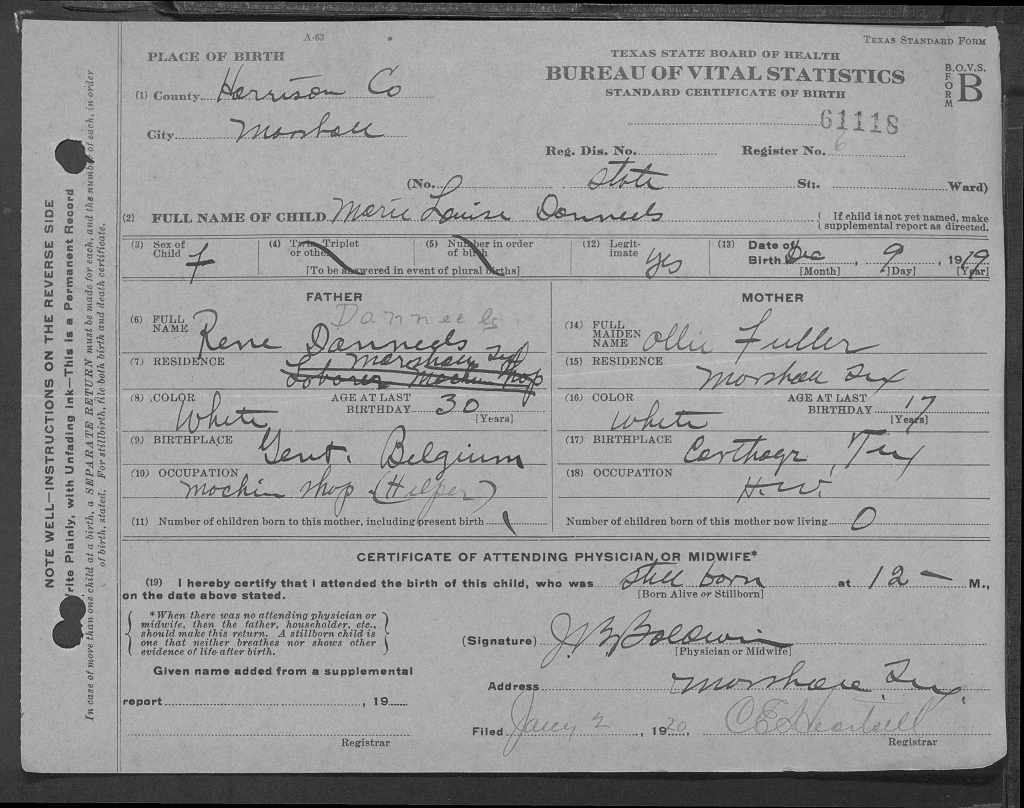 A-63
TEXAS STANDARD FORM
PLACE OF BIRTH
TEXAS STATE BOARD OF HEALTH
BUREAU OF VITAL STATISTICS
STANDARD CERTIFICATE OF BIRTH
B.O.V.S.
FORM B
(1) County Harrison Co
61118
City Marshall
Reg. Dis. No. Register No. 6
(No. State St; Ward)
(2) FULL NAME OF CHILD Marie Louise Danneels
{ If child is not yet named, make supplemental report as directed.
(3) Sex of Child F
(4) Twin Triplet or other
(5) Number in order of birth
[To be answered in event of plural births]
(12) Legitimate Yes
(13) Date of Birth Dec 9, 1919
[Month] [Day] [Year]
FATHER
Danneels
(6) FULL NAME Rene Danneels
(7) RESIDENCE Marshall Tex
Laborer Machin Shop
(8) COLOR White
AGE AT LAST BIRTHDAY 30
[Years]
(9) BIRTHPLACE Gent. Belgium
(10) OCCUPATION
Machin shop (Helper)
(11) Number of children born to this mother, including present birth 1
MOTHER
(14) FULL MAIDEN NAME Ollie Fuller
(15) RESIDENCE
Marshall Tex
(16) COLOR White
AGE AT LAST BIRTHDAY 17
[Years]
(17) BIRTHPLACE Carthage, Tex
(18) OCCUPATION
H.W.
Number of children born of this mother now living 0
CERTIFICATE OF ATTENDING PHYSICIAN OR MIDWIFE*
(19) I hereby certify that I attended the birth of this child, who was still born at 12 — M.,
[Born Alive or Stillborn]
on the date above stated.
{ *When there was no attending physician or
midwife, then the father, householder, etc.,
should make this return. A stillborn child is
one that neither breathes nor shows other
evidence of life after birth. }
(Signature) J. B. Baldwin
[Physician or Midwife]
Given name added from a supplemental
report , 19
Registrar
Address Marshall, Tex.
Filed Jany 2, 1920, C E Heartsill
Registrar
NOTE WELL—INSTRUCTIONS ON THE REVERSE SIDE
rite Plainly, with Unfading Ink—This is a Permanent Record
In case of more than one child at a birth, a SEPARATE RETURN must be made for each, and the number of each, in order
of birth, stated. For stillbirth, file both birth and death certificate.